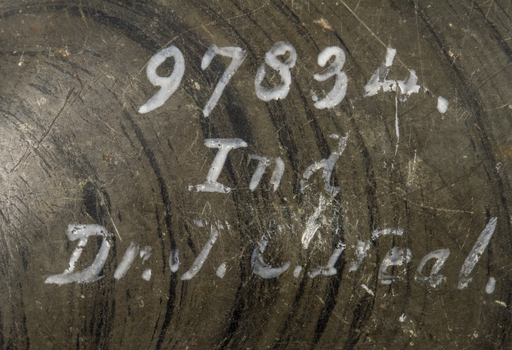 97834.
Ind
Dr. T. C. Neal.